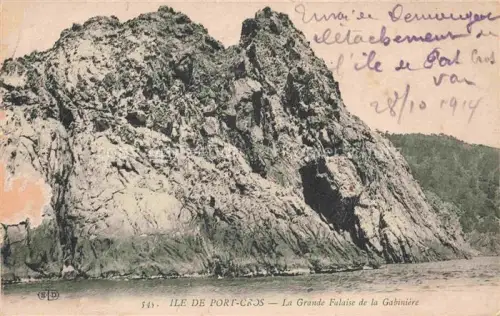 Envoi de Demouge
détachement de
l'île de Port Cros
Var
28/10 1914
ILE DE PORT-CROS — La Grande Falaise de la Gabinière
ELD